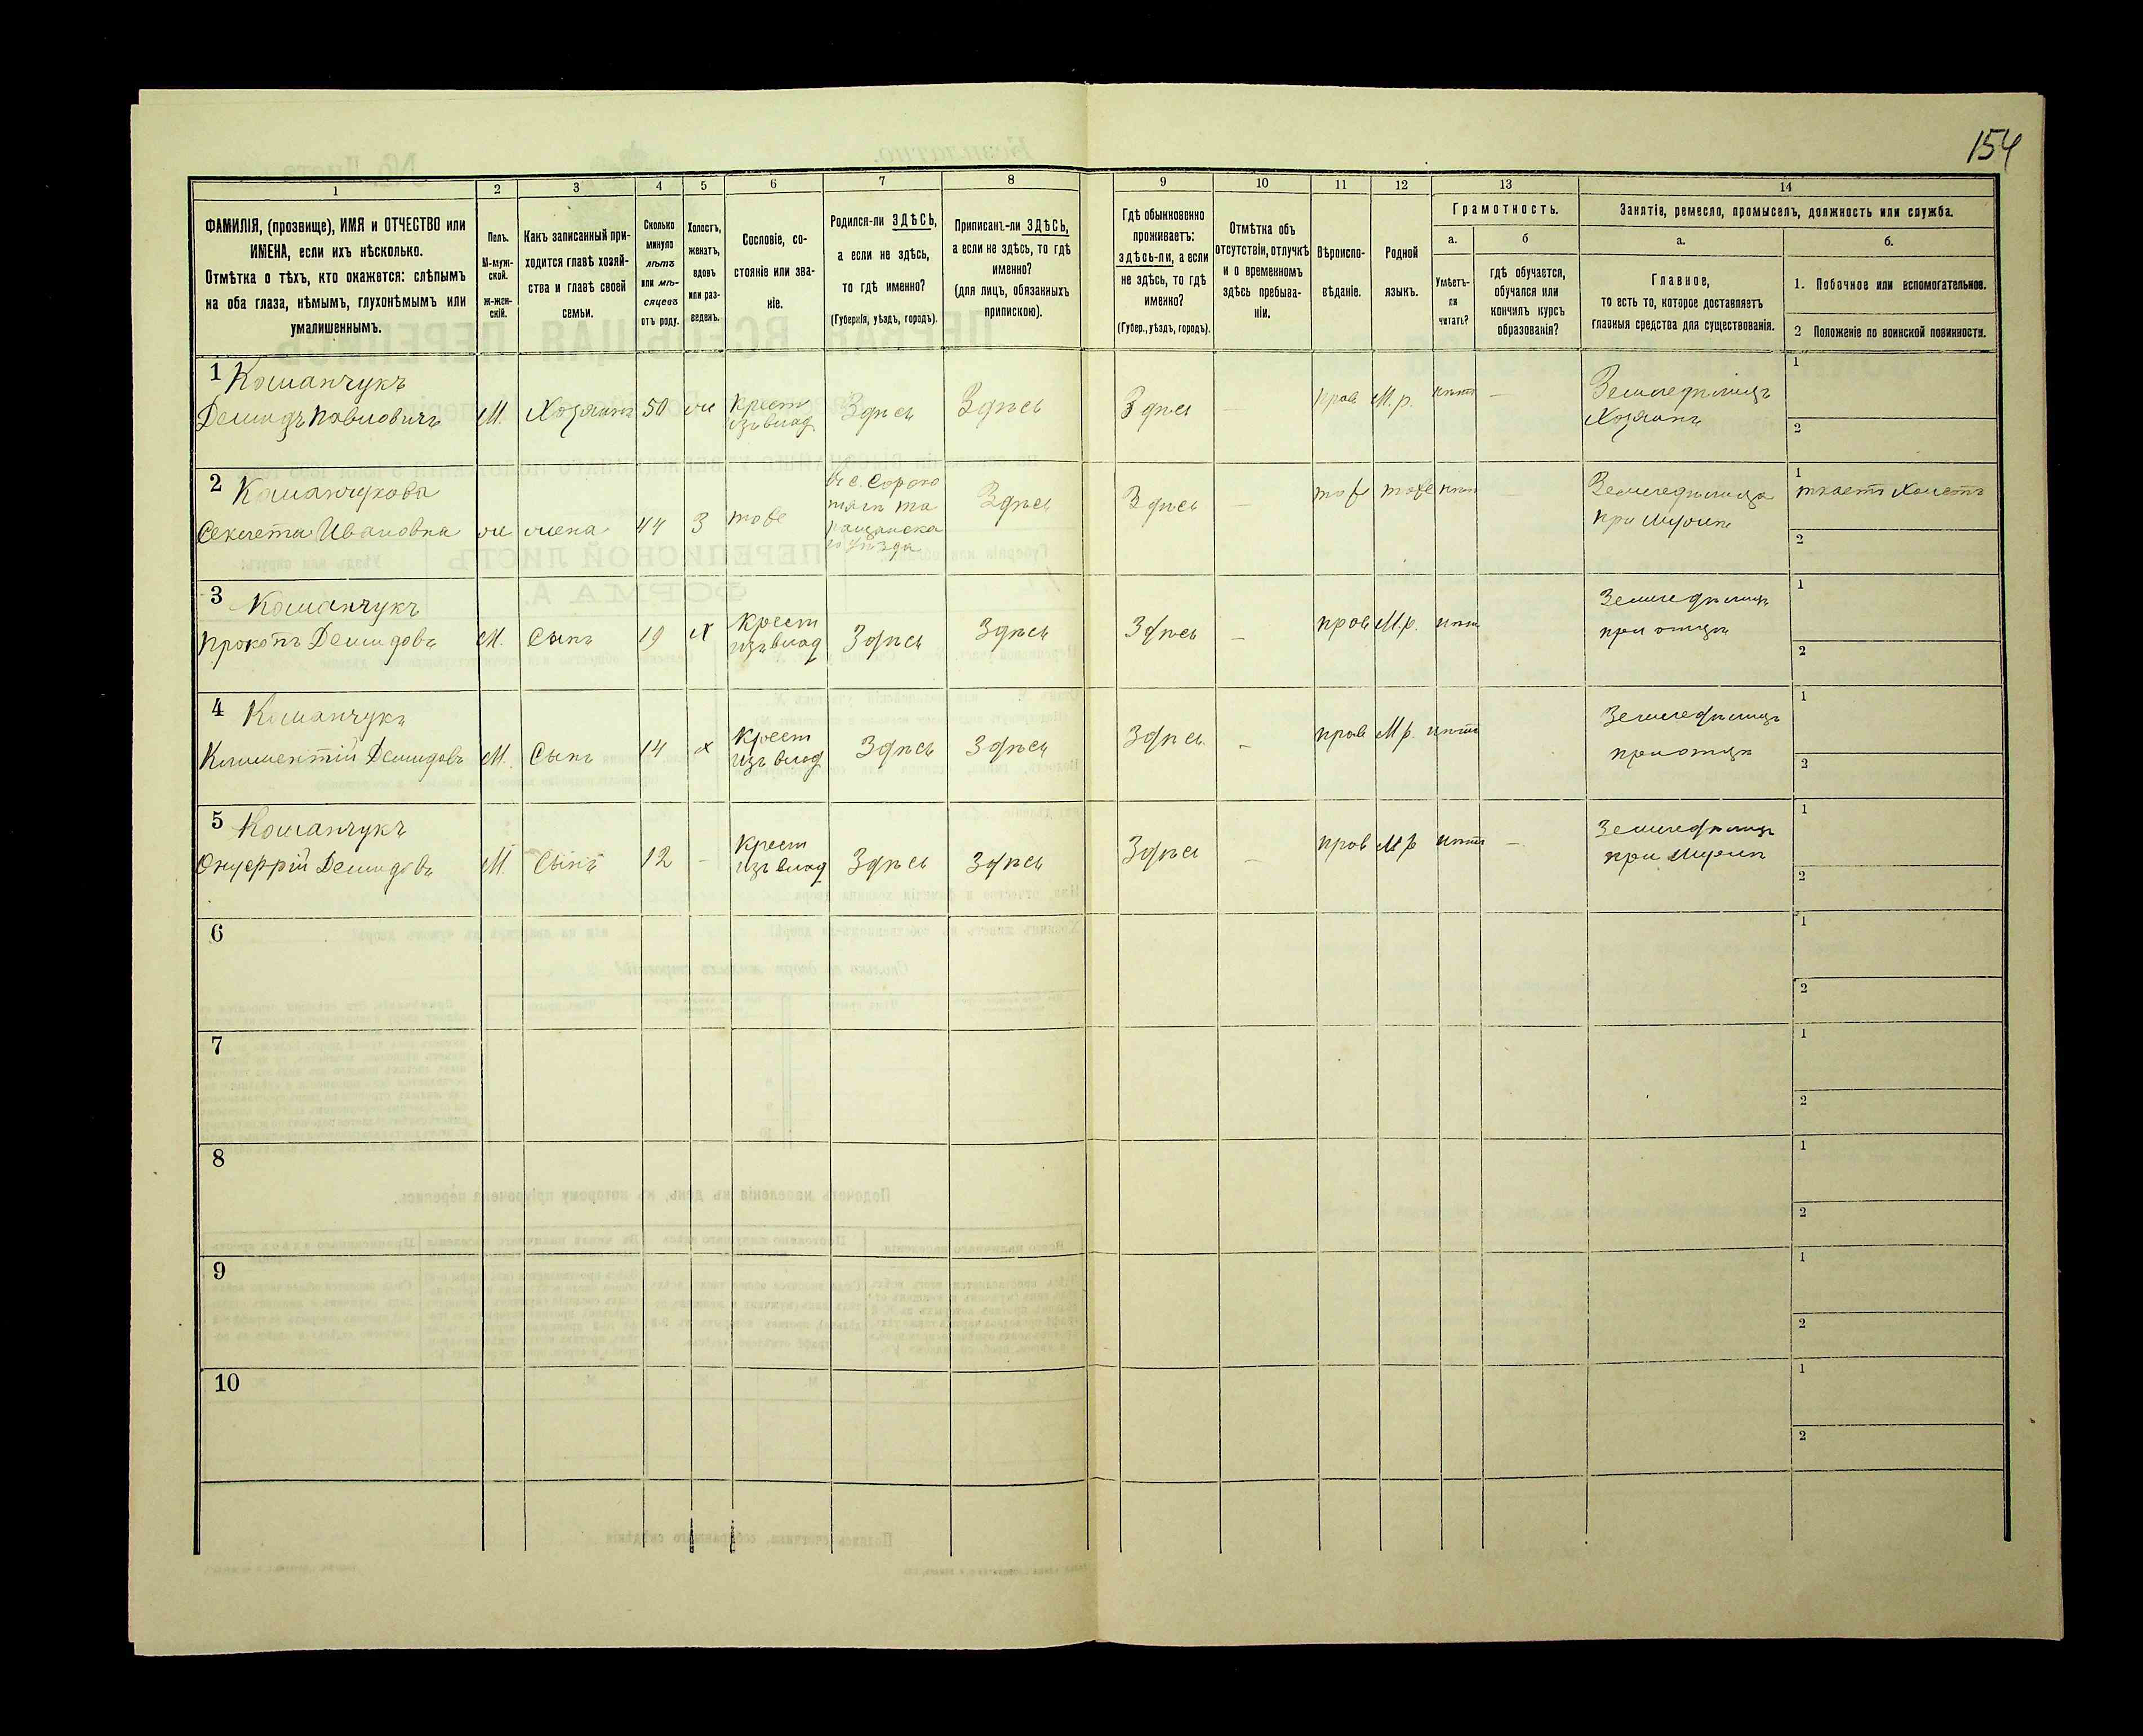 154
1
2
3
4
5
6
7
8
9
10
11
12
13
14
ФАМИЛІЯ, (прозвище), ИМЯ и ОТЧЕСТВО или
ИМЕНА, если ихъ нѣсколько.
Отмѣтка о тѣхъ, кто окажется: слѣпымъ
на оба глаза, нѣмымъ, глухонѣмымъ или
умалишеннымъ.
Полъ.
М-муж-
ской.
ж-жен-
скій.
Какъ записанный при-
ходится главѣ хозяй-
ства и главѣ своей
семьи.
Сколько
минуло
лѣтъ
или мѣ-
сяцевъ
отъ роду.
Холостъ,
женатъ,
вдовъ
или раз-
веденъ.
Сословіе, со-
стояніе или зва-
ніе.
Родился-ли ЗДѢСЬ,
а если не здѣсь,
то гдѣ именно?
(Губернія, уѣздъ, городъ).
Приписанъ-ли ЗДѢСЬ,
а если не здѣсь, то гдѣ
именно?
(для лицъ, обязанныхъ
припискою).
Гдѣ обыкновенно
проживаетъ:
здѣсь-ли, а если
не здѣсь, то гдѣ
именно?
(Губер., уѣздъ, городъ).
Отмѣтка объ
отсутствіи, отлучкѣ
и о временномъ
здѣсь пребыва-
ніи.
Вѣроиспо-
вѣданіе.
Родной
языкъ.
Грамотность.
а.
б
Умѣетъ-
ли
читать?
гдѣ обучается,
обучался или
кончилъ курсъ
образованія?
Занятіе, ремесло, промыселъ, должность или служба.
а.
б.
Главное,
то есть то, которое доставляетъ
главныя средства для существованія.
1. Побочное или вспомогательное.
2 Положеніе по воинской повинности.
1 Кошанчукъ
Демидъ Павловичъ
М.
Хозяинъ
50
ж
Крест
изъ влад
Здѣсь
Здѣсь
Здѣсь
—
прав
М.р.
нѣтъ
—
Земледѣлецъ
Хозяинъ
1
2
2 Кошанчукова
Секлета Ивановна
ж
жена
44
З
тоже
Въ с. Сороко
тяги та
ращанска
го уѣзда
Здѣсь
Здѣсь
—
тоже
тоже
нѣтъ
—
Земледѣлица
при мужѣ
1 ткаетъ холстъ
2
3 Кошанчукъ
Прокопъ Демидовъ
М.
Сынъ
19
х
Крест
изъ влад
Здѣсь
Здѣсь
Здѣсь
—
прав
М.р.
нѣтъ
Земледѣлецъ
при отцѣ
1
2
4 Кошанчукъ
Климентій Демидовъ
М.
Сынъ
14
х
Крест
изъ влад
Здѣсь
Здѣсь
Здѣсь
—
прав
М.р.
нѣтъ
Земледѣлецъ
при отцѣ
1
2
5 Кошанчукъ
Онуфрій Демидовъ
М.
Сынъ
12
-
Крест
изъ влад
Здѣсь
Здѣсь
Здѣсь
—
прав
М.р
нѣтъ
—
Земледѣлецъ
1
2
6
1
2
7
1
2
8
1
2
9
1
2
10
1
2